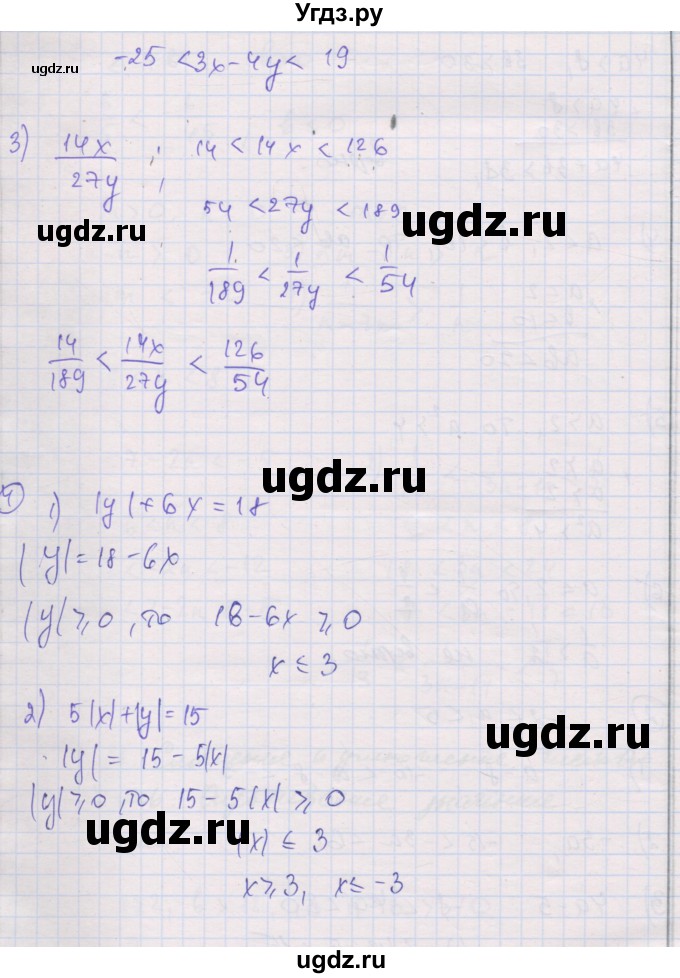 Угдз.ру
-25 < 3x - 4y < 19
ugdz.ru
3) 14x/27y ; 14 < 14x < 126
54 < 27y < 189
ugdz.ru
ugdz.ru
1/189 < 1/27y < 1/54
14/189 < 14x/27y < 126/54
ugdz.ru
4 1) |y| + 6x = 18
|y| = 18 - 6x
ugdz.ru
|y| ⩾ 0, то 18 - 6x ⩾ 0
x ≤ 3
2) 5|x| + |y| = 15
ugdz.ru
|y| = 15 - 5|x|
|y| ⩾ 0, то 15 - 5|x| ⩾ 0
ugdz.ru
|x| ≤ 3
x ⩾ 3, x ≤ -3
ugdz.ru
Угдз.ру